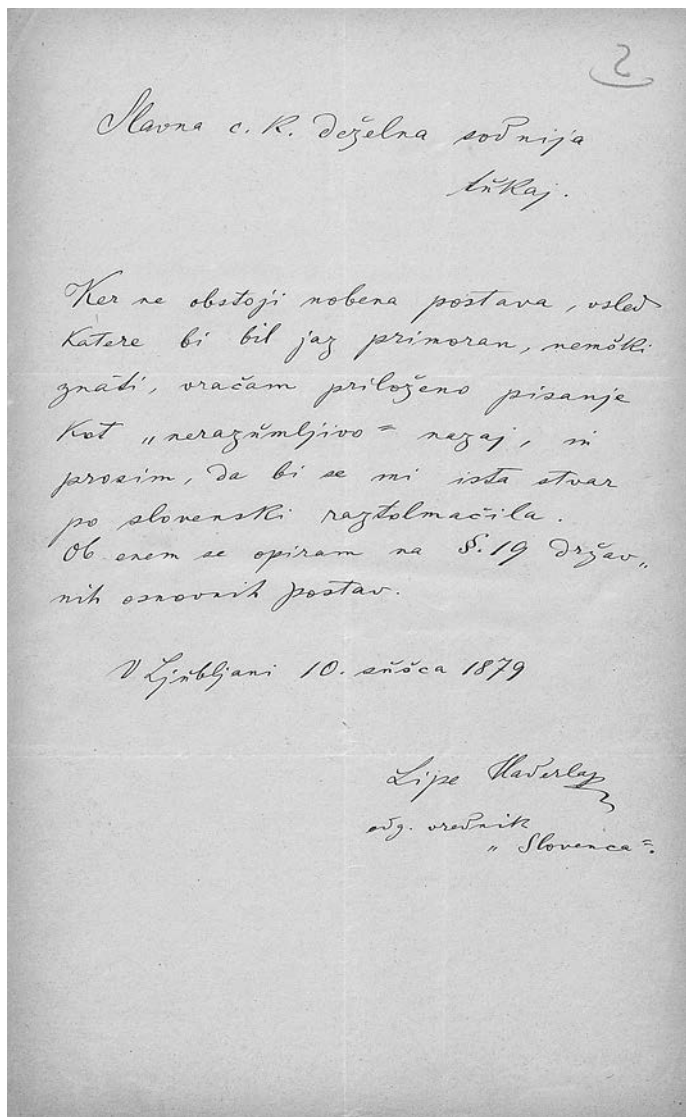 2
Slavna c. k. deželna sodnija
tukaj.
Ker ne obstoji nobena postava, vsled
katere bi bil jaz primoran, nemški
znati, vračam priloženo pisanje
kot „nerazumljivo“ nazaj, in
prosim, da bi se mi ista stvar
po slovenski raztolmačila.
Ob enem se opiram na §. 19 držav„
nih osnovnih postav.
V Ljubljani 10. sušca 1879
Lipe Haderlap
odg. vrednik
„Slovenca“.